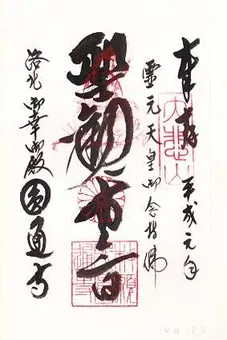 奉拝 平成元年
霊元天皇御念持佛
聖観世音
洛北 御幸御殿 圓通寺